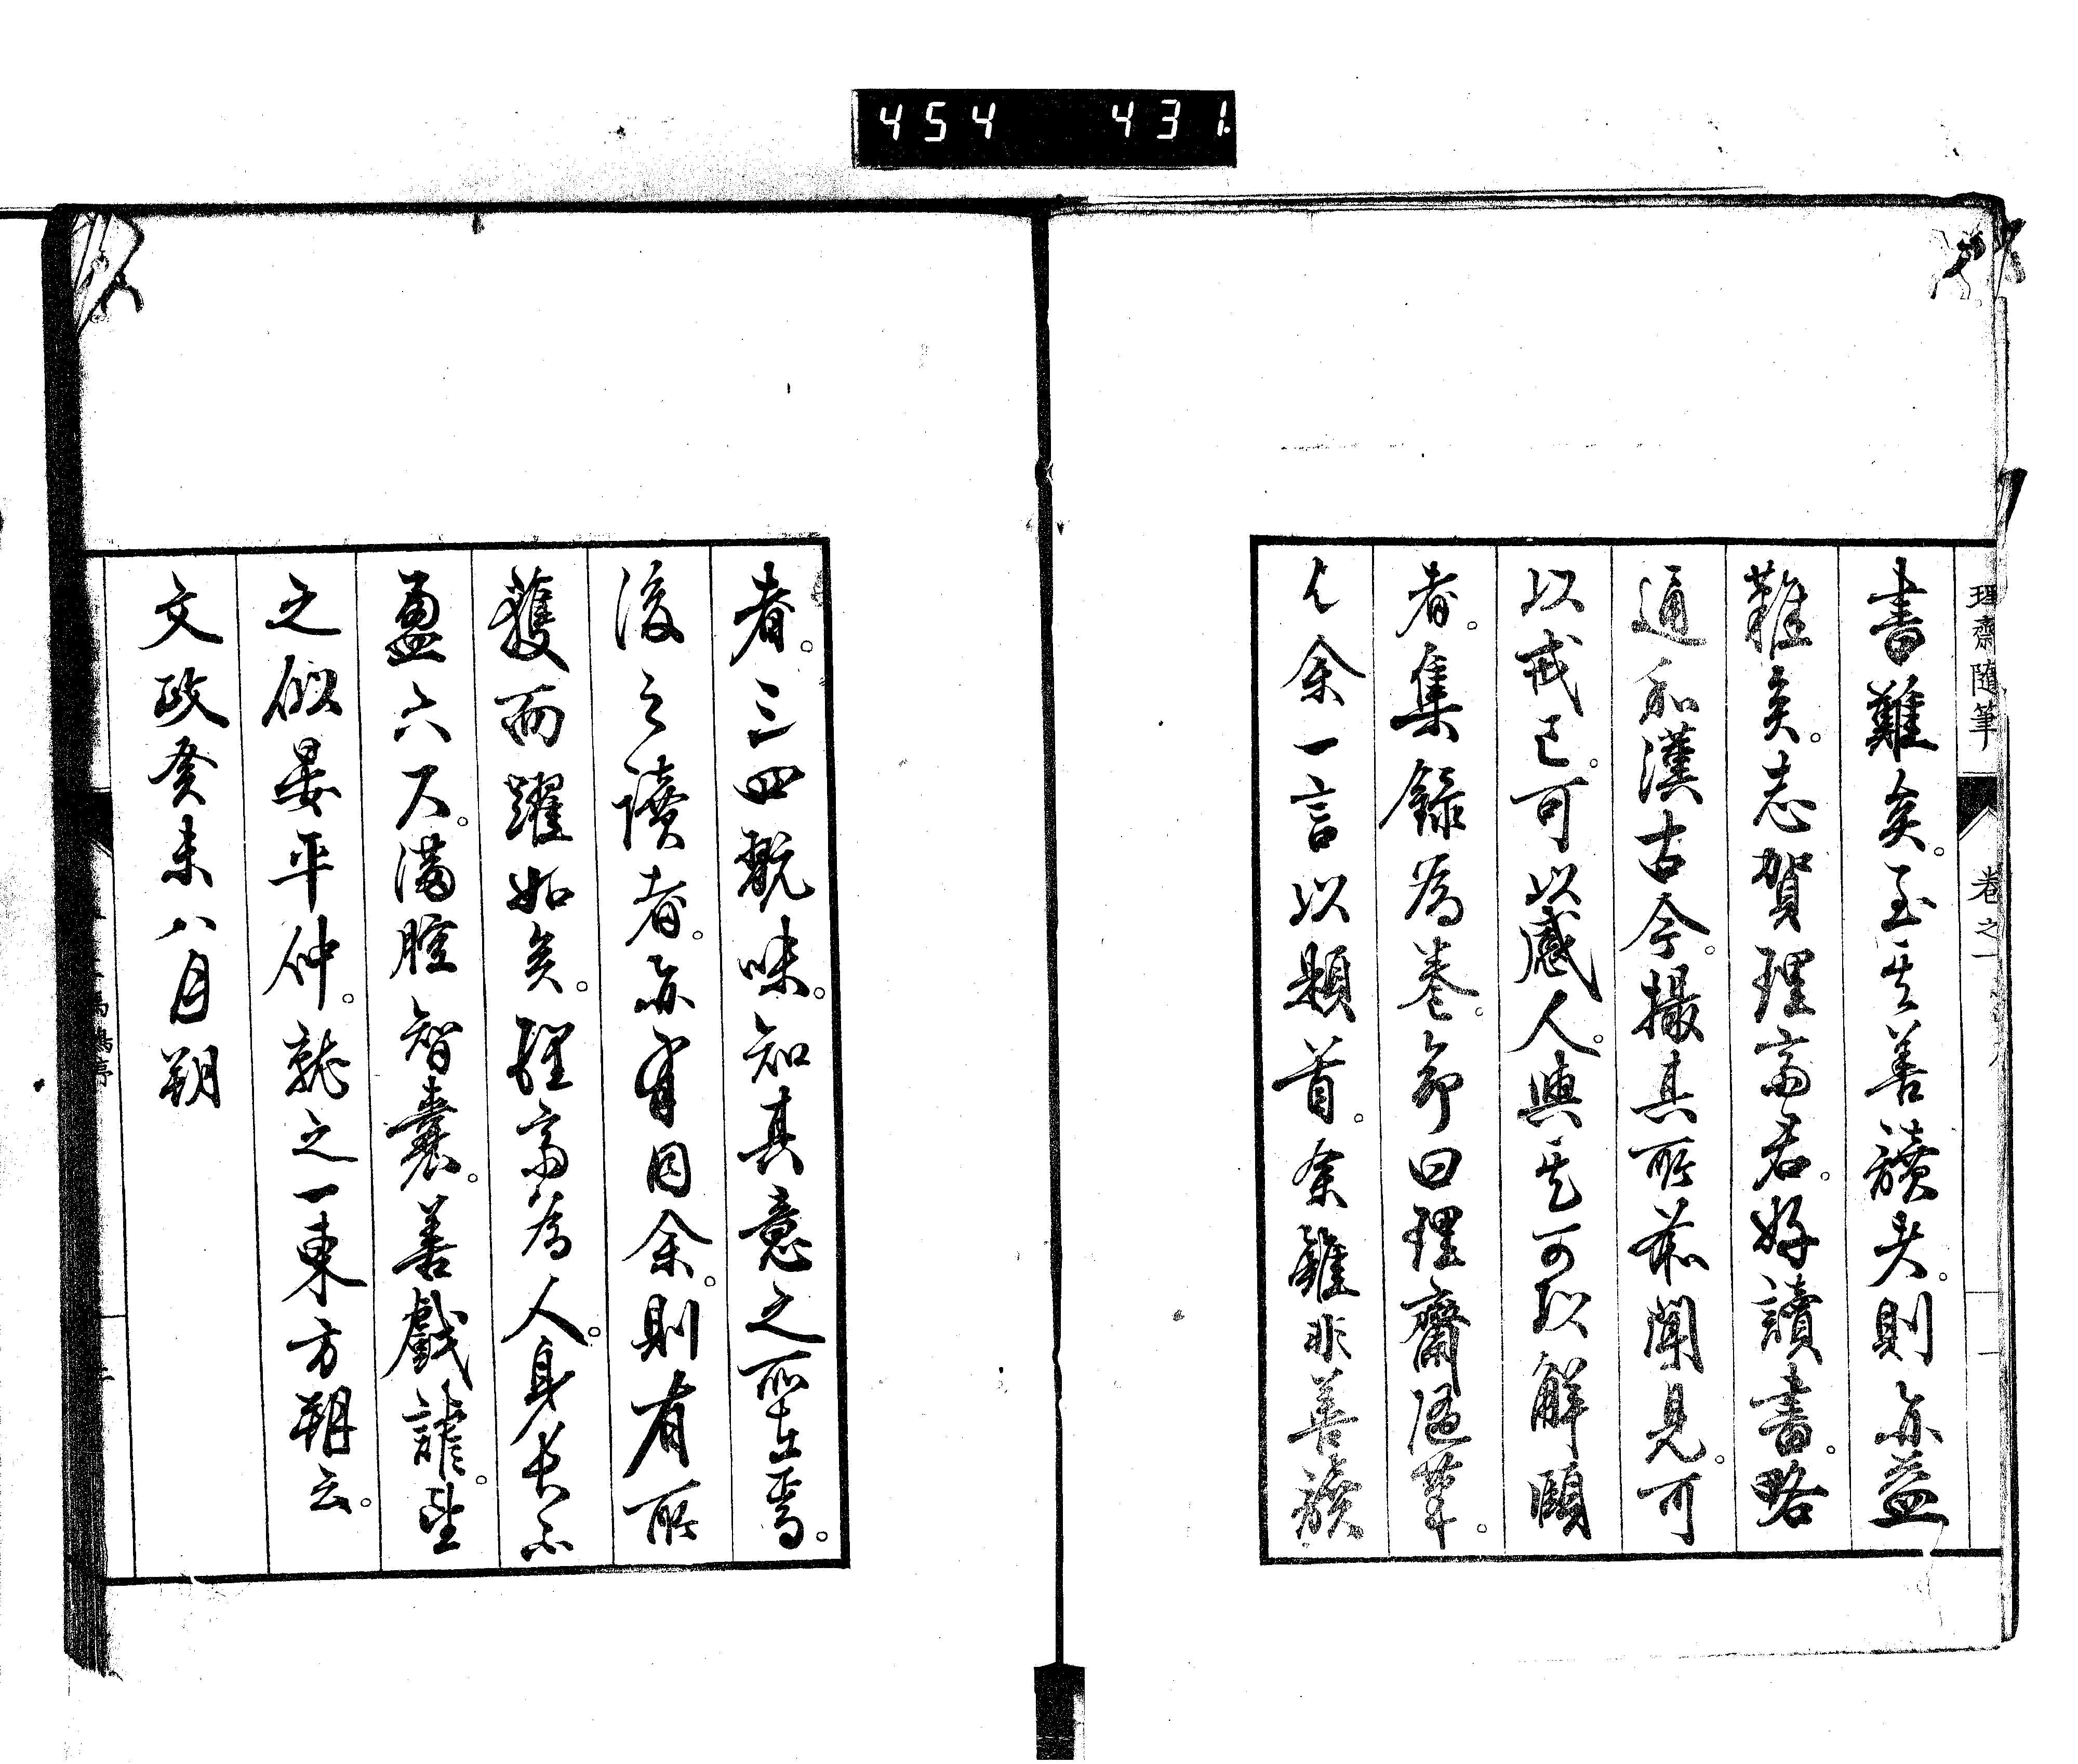 454 431
理齋隨筆 卷之一 一
書難矣。至其善讀失。則亦益
難矣。志賀理齋君。好讀書。略
通和漢古今。撮其所聞見。可
以戒己。可以感人。與其可以解頤
者。集錄為卷。命曰理齋隨筆。
乞余一言以題首。余雖非善讀
者。三四翫味。知其意之所在焉。
後之讀者。亦有同余。則有所
獲而躍如矣。理齋為人。身長不
盈六尺。滿腔智囊。善戲謔。望
之似晏平仲。就之一東方朔云。
文政癸未八月朔